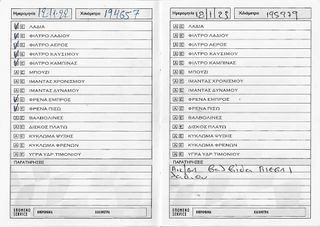 Ημερομηνία 12.11.22 Χιλιόμετρα 194657
Α Ε ΛΑΔΙΑ
Α Ε ΦΙΛΤΡΟ ΛΑΔΙΟΥ
Α Ε ΦΙΛΤΡΟ ΑΕΡΟΣ
Α Ε ΦΙΛΤΡΟ ΚΑΥΣΙΜΟΥ
Α Ε ΦΙΛΤΡΟ ΚΑΜΠΙΝΑΣ
Α Ε ΜΠΟΥΖΙ
Α Ε ΙΜΑΝΤΑΣ ΧΡΟΝΙΣΜΟΥ
Α Ε ΙΜΑΝΤΑΣ ΔΥΝΑΜΟΥ
Α Ε ΦΡΕΝΑ ΕΜΠΡΟΣ
Α Ε ΦΡΕΝΑ ΠΙΣΩ
Α Ε ΒΑΛΒΟΛΙΝΕΣ
Α Ε ΔΙΣΚΟΣ ΠΛΑΤΩ
Α Ε ΚΥΚΛΩΜΑ ΨΥΞΗΣ
Α Ε ΚΥΚΛΩΜΑ ΦΡΕΝΩΝ
Α Ε ΥΓΡΑ ΥΔΡ.ΤΙΜΟΝΙΟΥ
ΠΑΡΑΤΗΡΗΣΕΙΣ
ΕΠΟΜΕΝΟ SERVICE ΗΜΕΡΟΜΗΝΙΑ ΧΙΛΙΟΜΕΤΡΑ
Ημερομηνία 18/1/23 Χιλιόμετρα 195979
Α Ε ΛΑΔΙΑ
Α Ε ΦΙΛΤΡΟ ΛΑΔΙΟΥ
Α Ε ΦΙΛΤΡΟ ΑΕΡΟΣ
Α Ε ΦΙΛΤΡΟ ΚΑΥΣΙΜΟΥ
Α Ε ΦΙΛΤΡΟ ΚΑΜΠΙΝΑΣ
Α Ε ΜΠΟΥΖΙ
Α Ε ΙΜΑΝΤΑΣ ΧΡΟΝΙΣΜΟΥ
Α Ε ΙΜΑΝΤΑΣ ΔΥΝΑΜΟΥ
Α Ε ΦΡΕΝΑ ΕΜΠΡΟΣ
Α Ε ΦΡΕΝΑ ΠΙΣΩ
Α Ε ΒΑΛΒΟΛΙΝΕΣ
Α Ε ΔΙΣΚΟΣ ΠΛΑΤΩ
Α Ε ΚΥΚΛΩΜΑ ΨΥΞΗΣ
Α Ε ΚΥΚΛΩΜΑ ΦΡΕΝΩΝ
Α Ε ΥΓΡΑ ΥΔΡ.ΤΙΜΟΝΙΟΥ
ΠΑΡΑΤΗΡΗΣΕΙΣ
Βαλβίδα
λαδιου
ΕΠΟΜΕΝΟ SERVICE ΗΜΕΡΟΜΗΝΙΑ ΧΙΛΙΟΜΕΤΡΑ